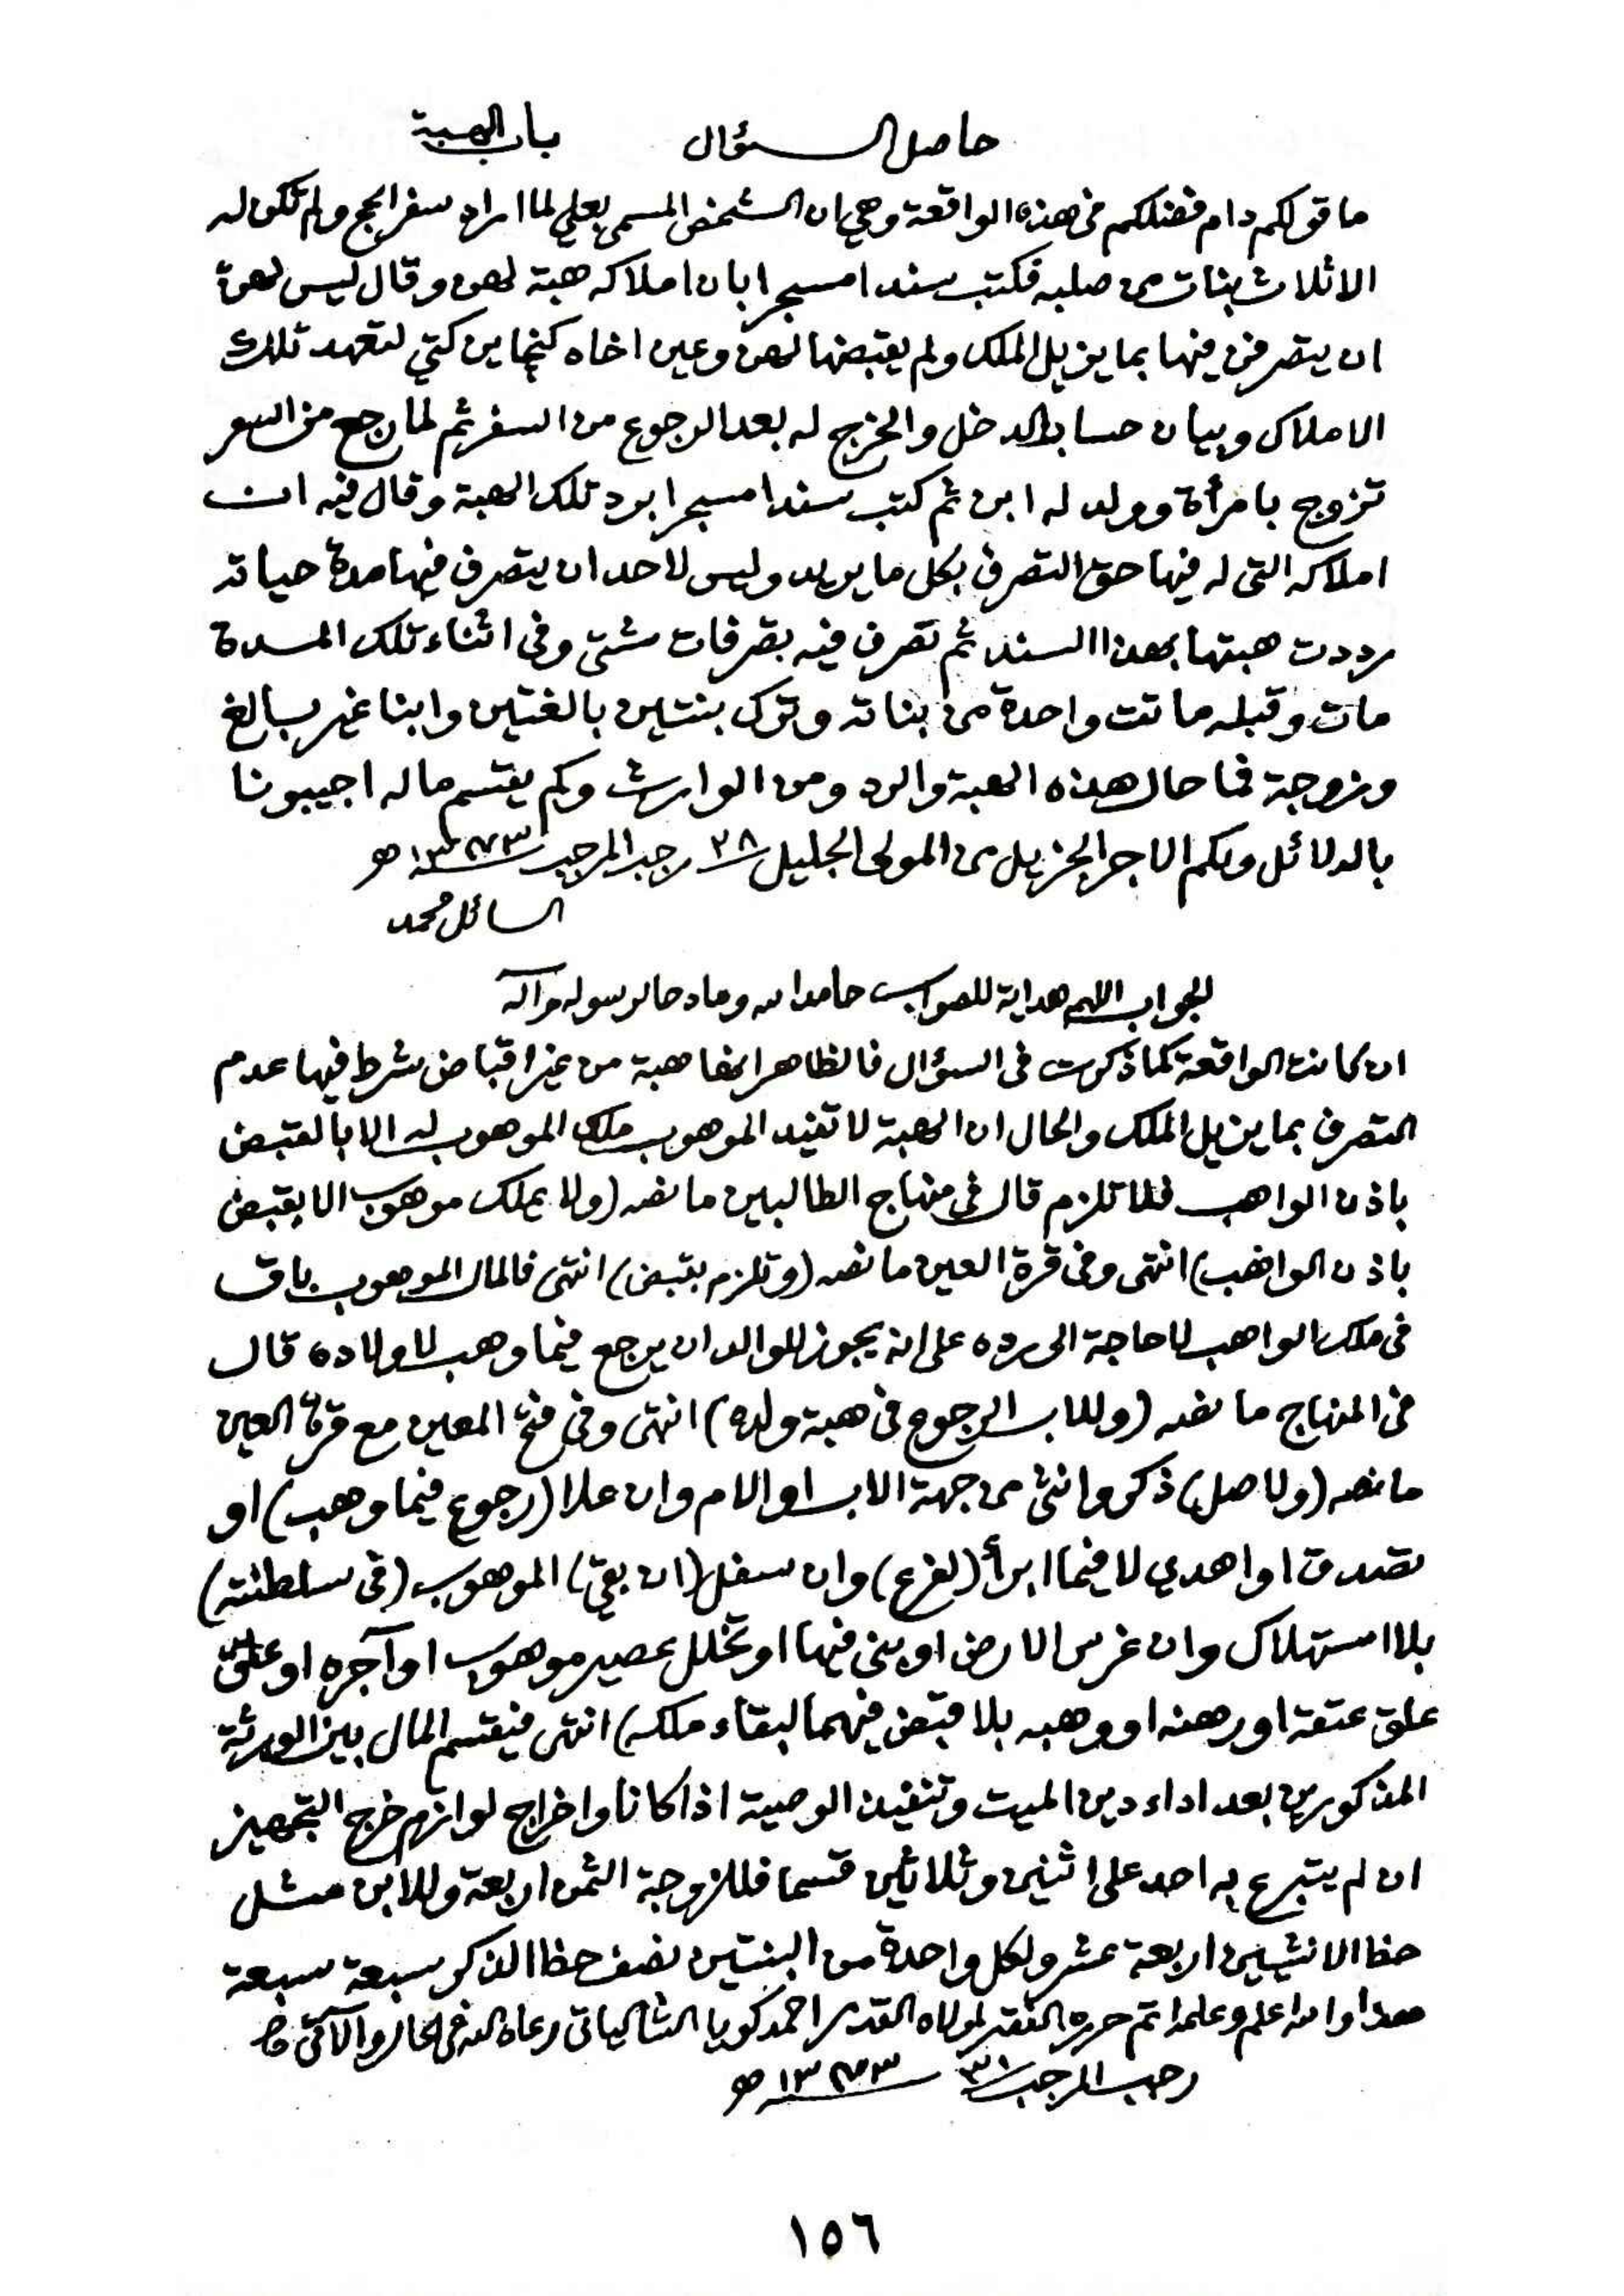 حاصل السؤال باب الهبة
ما قولكم دام فضلكم في هذه الواقعة وهي ان الشخص المسمى بعلي لما اراد سفر الحج ولم تكن له
الا ثلاث بنات من صلبه فكتب سندا مسجرا بان املاكه هبة لهن وقال ليس لهن
ان يتصرفن فيها بما يزيل الملك ولم يقبضها لهن وعين اخاه كنجاين كتي لتعهد تلك
الاملاك وبيان حساب الدخل والخرج له بعد الرجوع من السفر ثم لما رجع من السفر
تزوج بامرأة وولد له ابن ثم كتب سندا مسجرا برد تلك الهبة وقال فيه ان
املاكه التي له فيها حق التصرف بكل ما يريد وليس لاحد ان يتصرف فيها مدة حياته
رددت هبتها بهذا السند ثم تصرف فيه بتصرفات شتى وفي اثناء تلك المدة
مات وقبله ماتت واحدة من بناته وترك بنتين بالغتين وابنا غير بالغ
وزوجة فما حال هذه الهبة والرد ومن الوارث وكم يقتسم ماله اجيبونا
بالدلائل ولكم الاجر الجزيل من المولى الجليل ٢٨ رجب المرجب ١٣٧٣ ھ
السائل محمد
الجواب اللهم هداية للصواب حامدا لله ومادحا لرسوله وآله
ان كانت الواقعة كما ذكرت في السؤال فالظاهر انها هبة من غير اقباض شرط فيها عدم
التصرف بما يزيل الملك والحال ان الهبة لا تفيد الموهوب ملك الموهوب له الا بالقبض
باذن الواهب فلا تلزم قال في منهاج الطالبين ما نصه (ولا يملك موهوب الا بقبض
باذن الواهب) انتهى وفي قرة العين ما نصه (وتلزم بقبض) انتهى فالمال الموهوب باق
في ملك الواهب لا حاجة الى رده على انه يجوز للوالد ان يرجع فيما وهب لاولاده قال
في المنهاج ما نصه (وللاب الرجوع في هبة ولده) انتهى وفي فتح المعين مع قرة العين
ما نصه (ولاصل) ذكر وانثى من جهة الاب او الام وان علا (رجوع فيما وهب) او
تصدق او اهدي لا فيما ابرأ (لفرع) وان سفل (ان بقي) الموهوب (في سلطنته)
بلا استهلاك وان غرس الارض او بنى فيها او تخلل عصير موهوب او آجره او علق
علق عتقه او رهنه او وهبه بلا قبض فيهما لبقاء ملكه) انتهى فيقتسم المال بين الورثة
المذكورين بعد اداء دين الميت وتنفيذ الوصية اذا كانا واخراج لوازم خرج التجهيز
ان لم يتبرع به احد على اثنين وثلاثين قسما فللزوجة الثمن اربعة وللابن مثل
حظ الانثيين اربعة عشر ولكل واحدة من البنتين نصف حظ الذكر سبعة سبعة
هذا والله اعلم وعلمه اتم حرره الفقير لمولاه القدير احمد كويا الشالياتي رعاه الله في الحال والآتي
رجب المرجب ٣١ ١٣٧٣ ھ
١٥٦